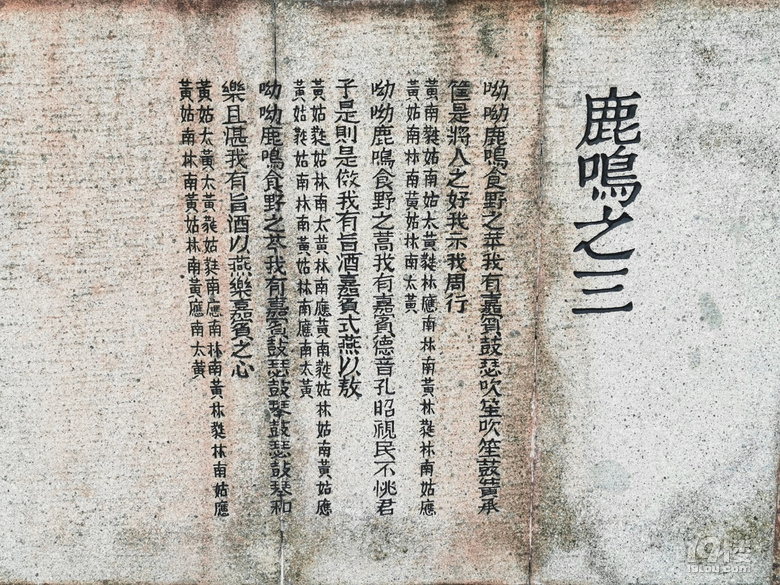 鹿鳴之三
呦呦鹿鳴食野之苹我有嘉賓鼓瑟吹笙吹笙鼓簧承
筐是將人之好我示我周行
黃南蕤姑南姑太黃蕤林應南林南黃林蕤林南姑應
黃姑南林南黃姑林南太黃
呦呦鹿鳴食野之蒿我有嘉賓德音孔昭視民不恌君
子是則是傚我有旨酒嘉賓式燕以敖
黃姑蕤姑林南太黃林南應黃南蕤姑林姑南黃姑應
黃姑蕤姑南林南黃姑林南應南太黃
呦呦鹿鳴食野之芩我有嘉賓鼓瑟鼓琴鼓瑟鼓琴和
樂且湛我有旨酒以燕樂嘉賓之心
黃姑太黃太黃蕤姑蕤南應南林南黃林蕤林南姑應
黃姑南林南黃姑林南黃應南太黃
19楼
19lou.com